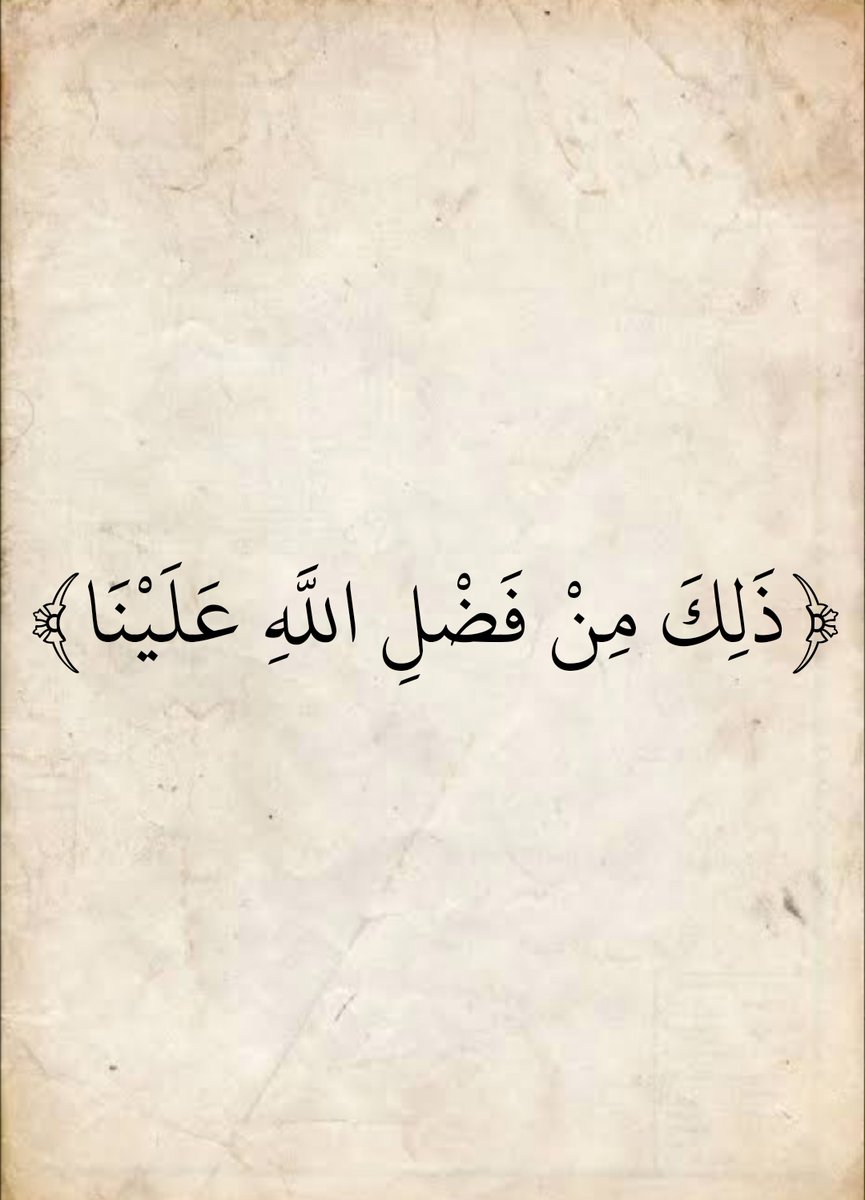 ﴿ذَلِكَ مِنْ فَضْلِ اللَّهِ عَلَيْنَا﴾